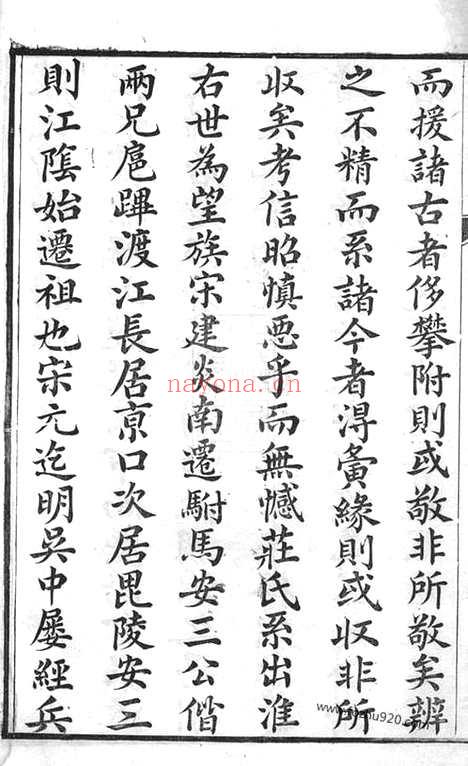 而援諸古者侈攀附則或敬非所敬矣辨
之不精而系諸今者淂夤緣則或收非所
收矣考信昭慎悪乎而無憾莊氏系出淮
右世為望族宋建炎南遷駙馬安三公偕
兩兄扈蹕渡江長居京口次居毘陵安三
則江陰始遷祖也宋元迄明吳中屡經兵
nayona.cn